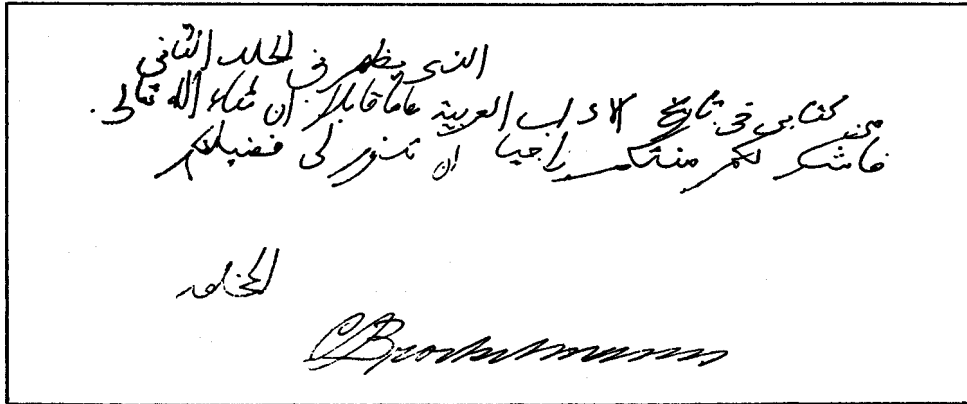 الذى يظهر فى المجلد الثانى
من كتابى فى تاريخ الآداب العربية عاما قابلا ان شاء الله تعالى.
فاشكر لكم منتكم راجيا ان لكم
المخلص
C Brockelmann